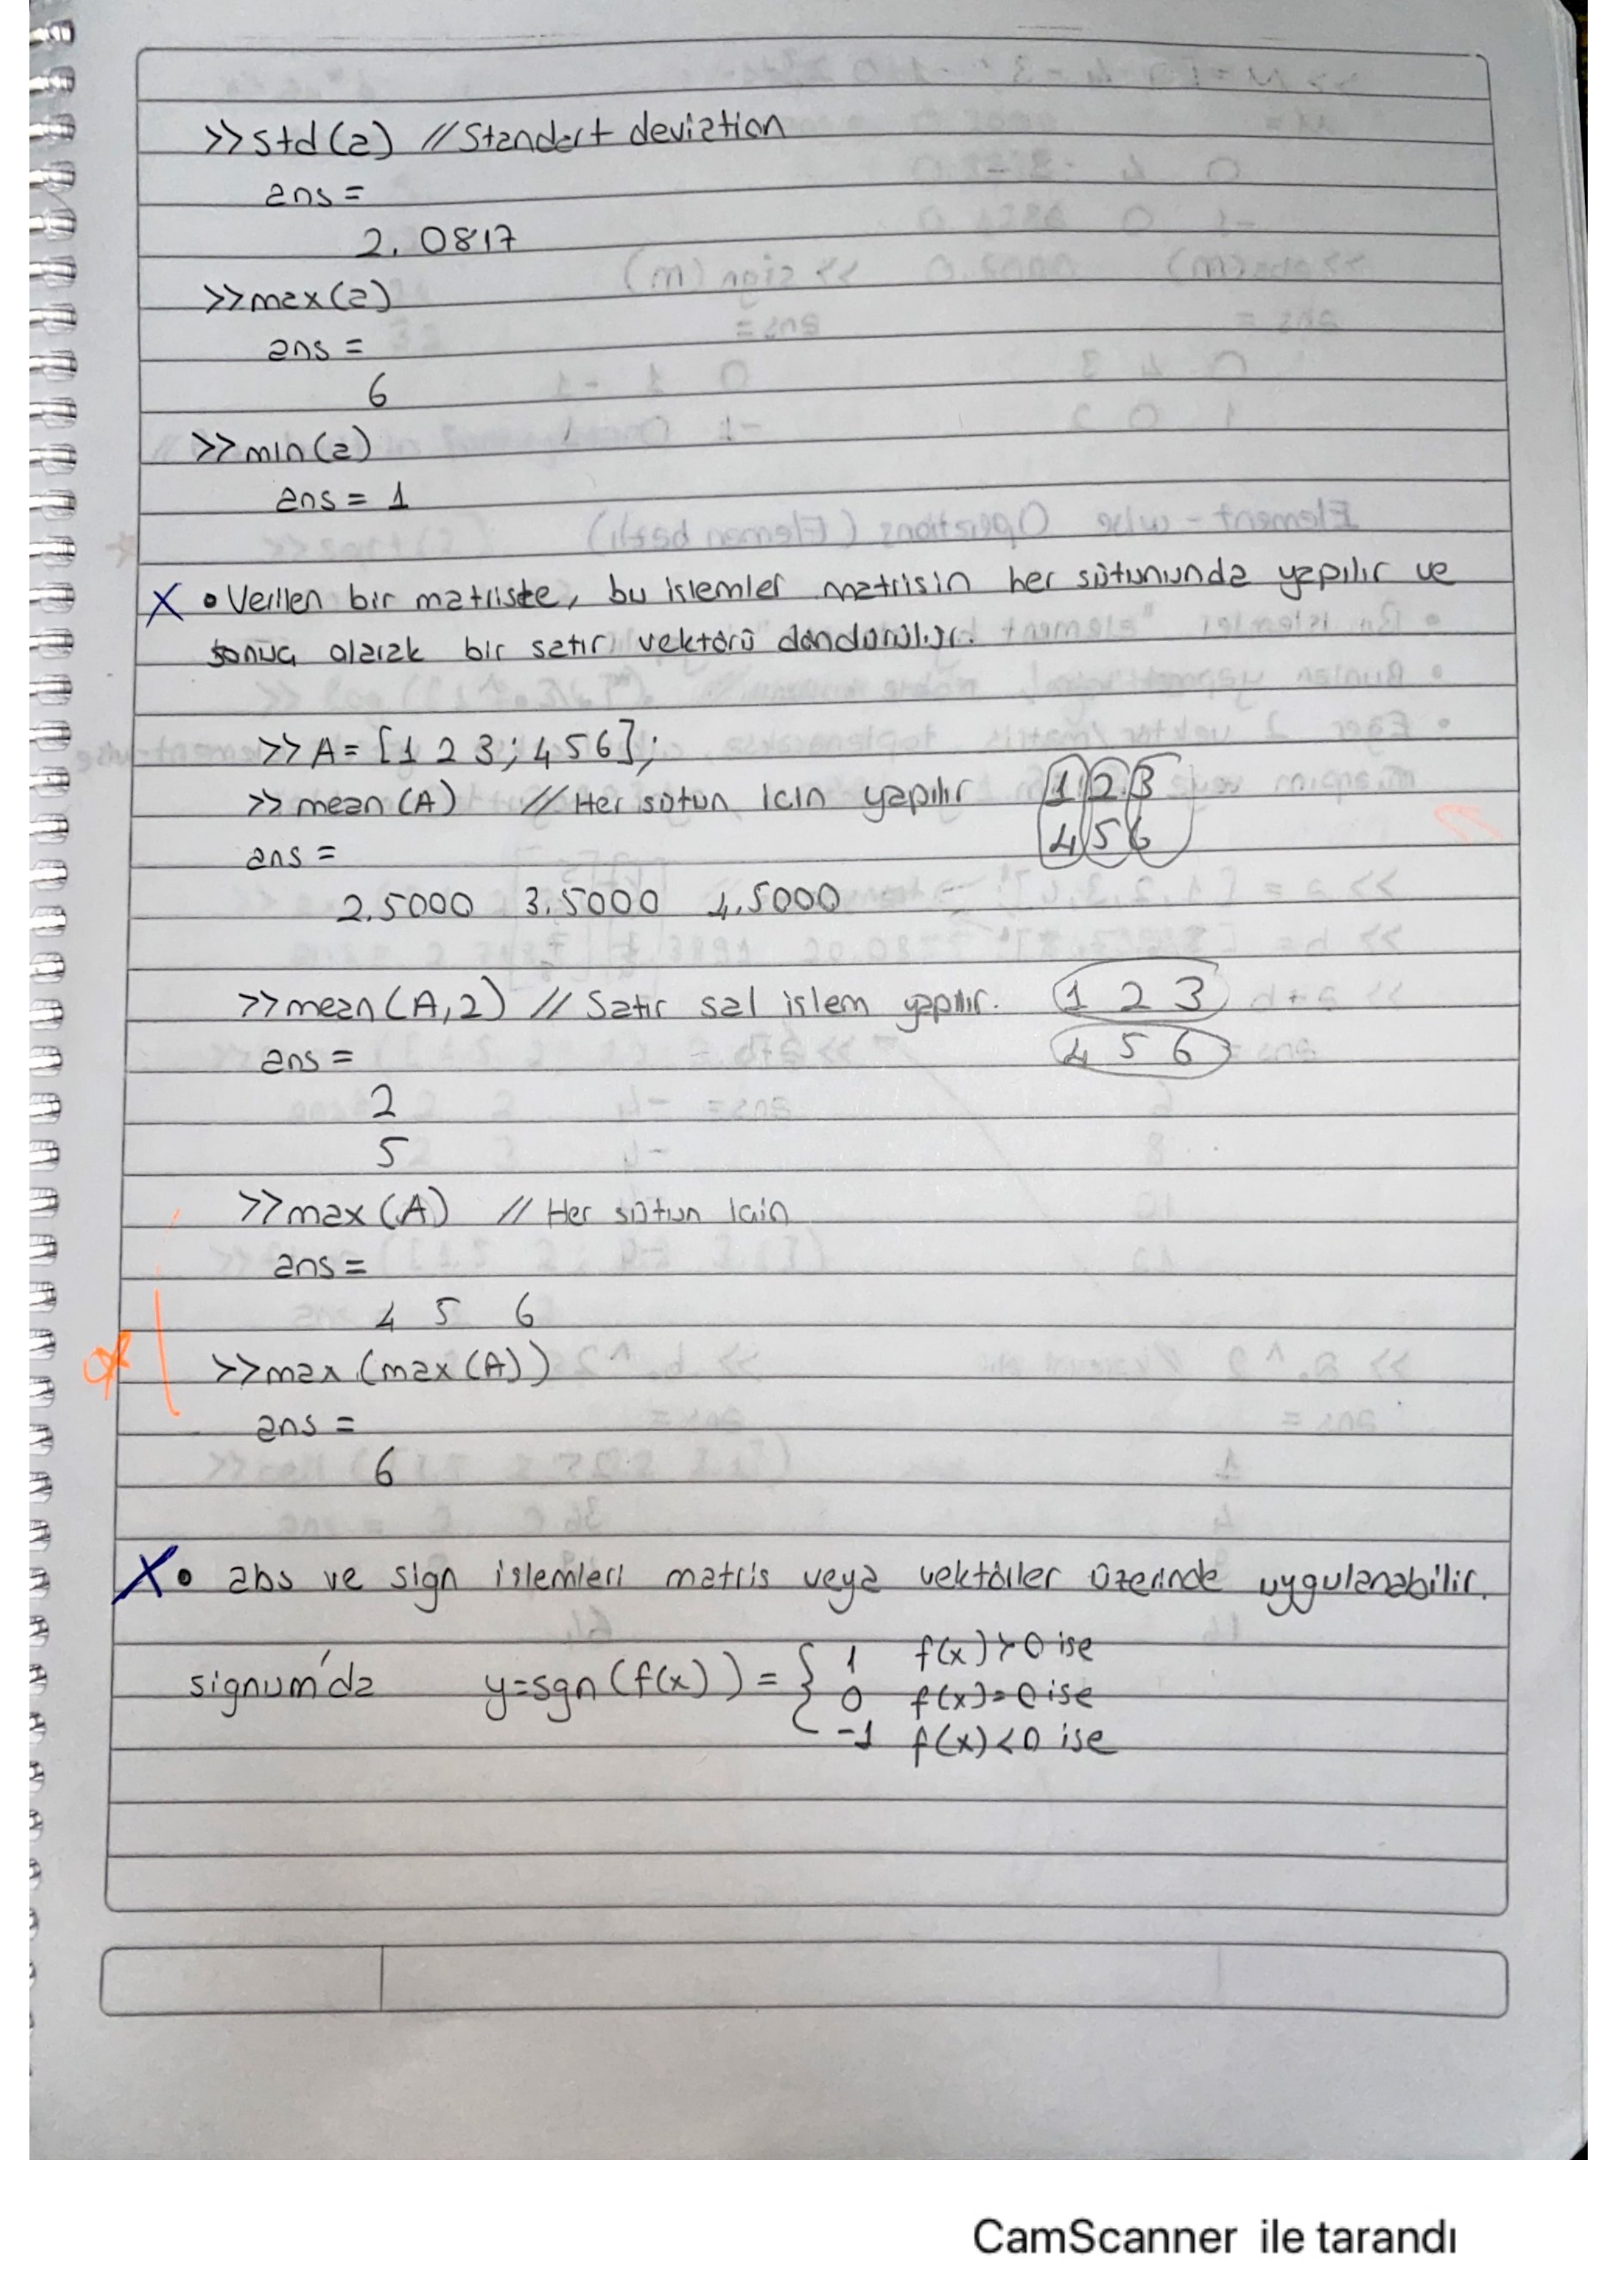 >>std(a) //Standart deviation
ans =
2.0817
>>max(a)
ans =
6
>>min(a)
ans = 1
X • Verilen bir matriste, bu islemler matrisin her sütununda yapılır ve
sonuç olarak bir satır vektörü döndürülür.
>>A=[1 2 3; 4 5 6];
>>mean(A) //Her sütun için yapılır 1 2 3
4 5 6
ans =
2.5000 3.5000 4.5000
>>mean(A,2) // Satır sal islem yapılır. 1 2 3
4 5 6
ans =
2
5
>>max(A) // Her sütun için
ans =
4 5 6
>>max(max(A))
ans =
6
X • abs ve sign islemleri matris veya vektörler üzerinde uygulanabilir.
signum'da y=sgn(f(x))={ 1 f(x)>0 ise
0 f(x)=0 ise
-1 f(x)<0 ise
CamScanner ile tarandı